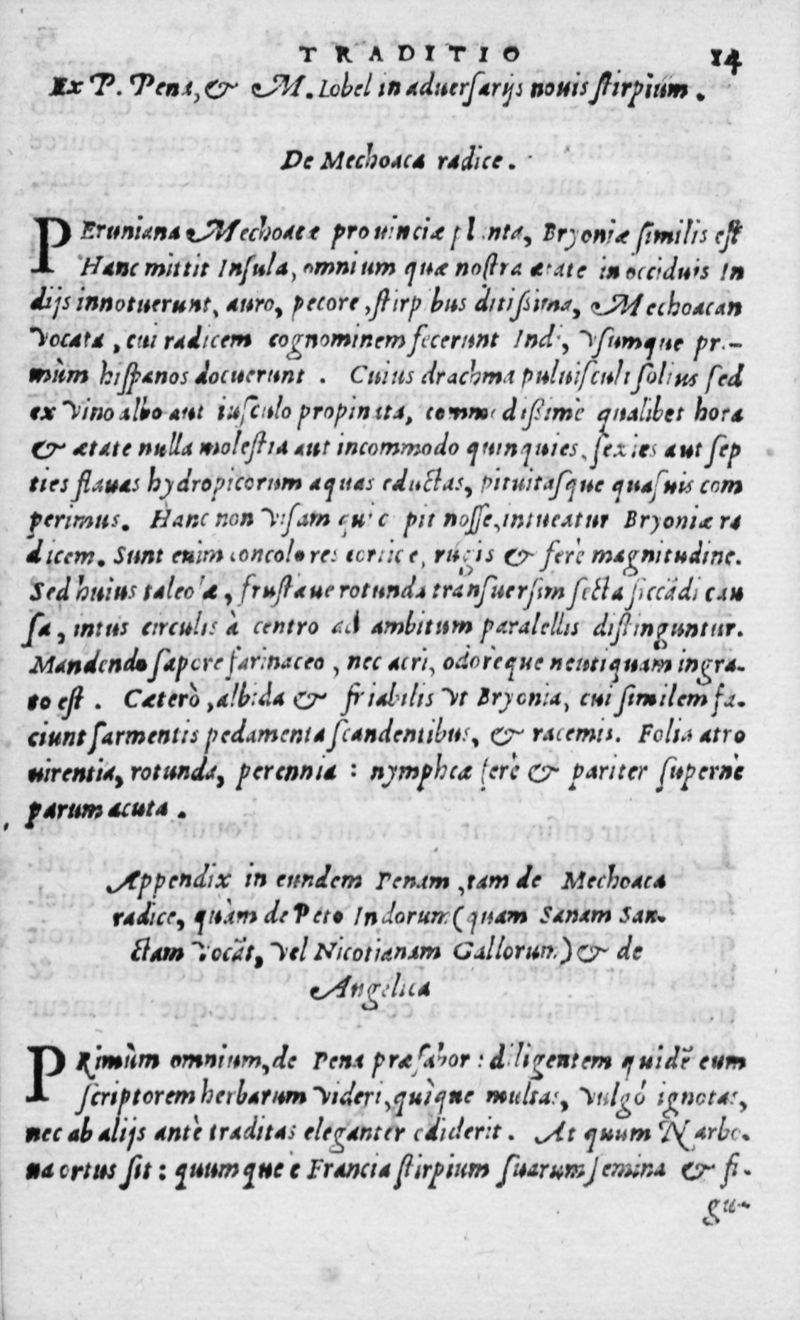 TRADITIO 14
Ex P. Pena, & M. Lobel in aduersarijs nouis stirpium.
De Mechoaca radice.
PEruniana Mechoacæ prouinciæ planta, Bryoniæ similis est
Hanc mittit Insula, omnium quæ nostra ætate in occiduis In
dijs innotuerunt, auro, pecore, stirpibus ditissima, Mechoacan
Vocata, cui radicem cognominem fecerunt Indi, Vsumque pri-
mùm hispanos docuerunt. Cuius drachma puluisculi solius sed
ex Vino albo aut iusculo propinata, commodissimè qualibet hora
& ætate nulla molestia aut incommodo quinquies, sexies aut sep
ties flauas hydropicorum aquas eductas, pituitasque quasuis com
perimus. Hanc non Visam qui cupit nosse, intueatur Bryoniæ ra
dicem. Sunt enim concolores cortice, rugis & ferè magnitudine.
Sed huius taleolæ, frustaue rotunda transuersim secta siccādi cau
sa, intus circulis à centro ad ambitum paralellis distinguntur.
Mandendo sapore farinaceo, nec acri, odoreque neutiquam ingra-
to est. Cæterò, albida & friabilis Vt Bryonia, cui similem fa-
ciunt sarmentis pedamenta scandentibus, & racemis. Folia atro
uirentia, rotunda, perennia : nympheæ ferè & pariter supernè
parum acuta.
Appendix in eundem Penam, tam de Mechoaca
radice, quàm de Peto Indorum (quam Sanam San-
ctam Vocāt, Vel Nicotianam Gallorum) & de
Angelica
PRimùm omnium, de Pena præfabor : diligentem quidē eum
scriptorem herbarum Videri, quìque multas, Vulgó ignotas,
nec ab alijs antè traditas eleganter ediderit. At quum Narbo-
na ortus sit : quumque è Francia stirpium suarum semina & fi-
gu-